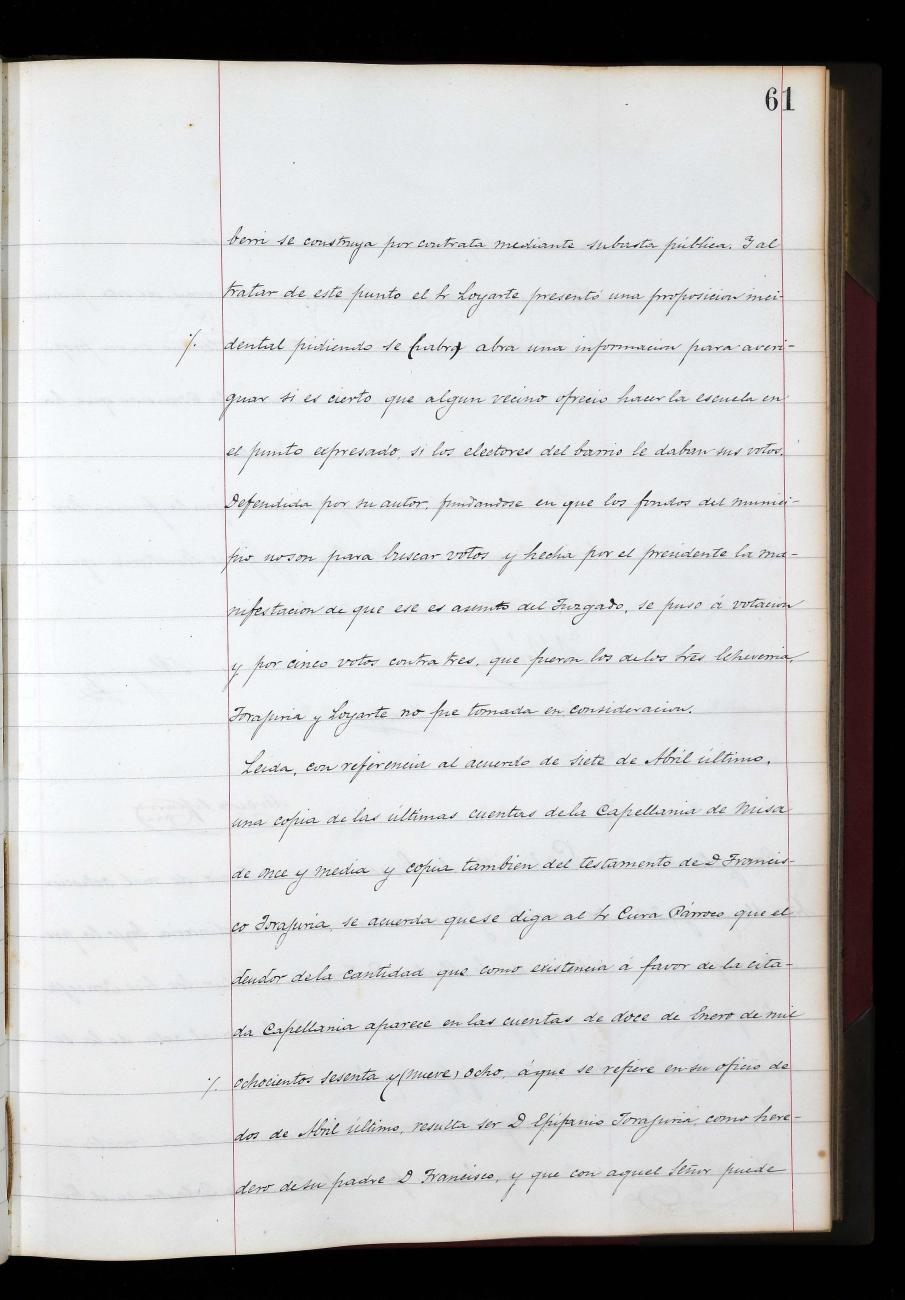 61
berri se construya por contrata mediante subasta pública. Y al
tratar de este punto el Sr Loyarte presentó una proposicion inci-
·/. dental pidiendo se (habra) abra una informacion para averi-
guar si es cierto que algun vecino ofrecio hacer la escuela en
el punto expresado, si los electores del barrio le daban sus votos.
Defendida por su autor, fundandose en que los fondos del munici-
pio no son para buscar votos y hecha por el presidente la ma-
nifestacion de que ese es asunto del Juzgado, se puso á votacion
y por cinco votos contra tres, que fueron los de los Sres Echeverria,
Yrajuria y Loyarte no fue tomada en consideracion.
Leida, con referencia al acuerdo de siete de Abril último,
una copia de las últimas cuentas de la Capellania de Misa
de once y media y copia tambien del testamento de D Francis-
co Yrajuria, se acuerda que se diga al Sr Cura Párroco que el
deudor de la cantidad que como existencia á favor de la cita-
da Capellania aparece en las cuentas de doce de Enero de mil
·/. ochocientos sesenta y (nueve) ocho, á que se refiere en su oficio de
dos de Abril último, resulta ser D Epifanio Yrajuria, como here-
dero de su padre D Francisco, y que con aquel Señor puede